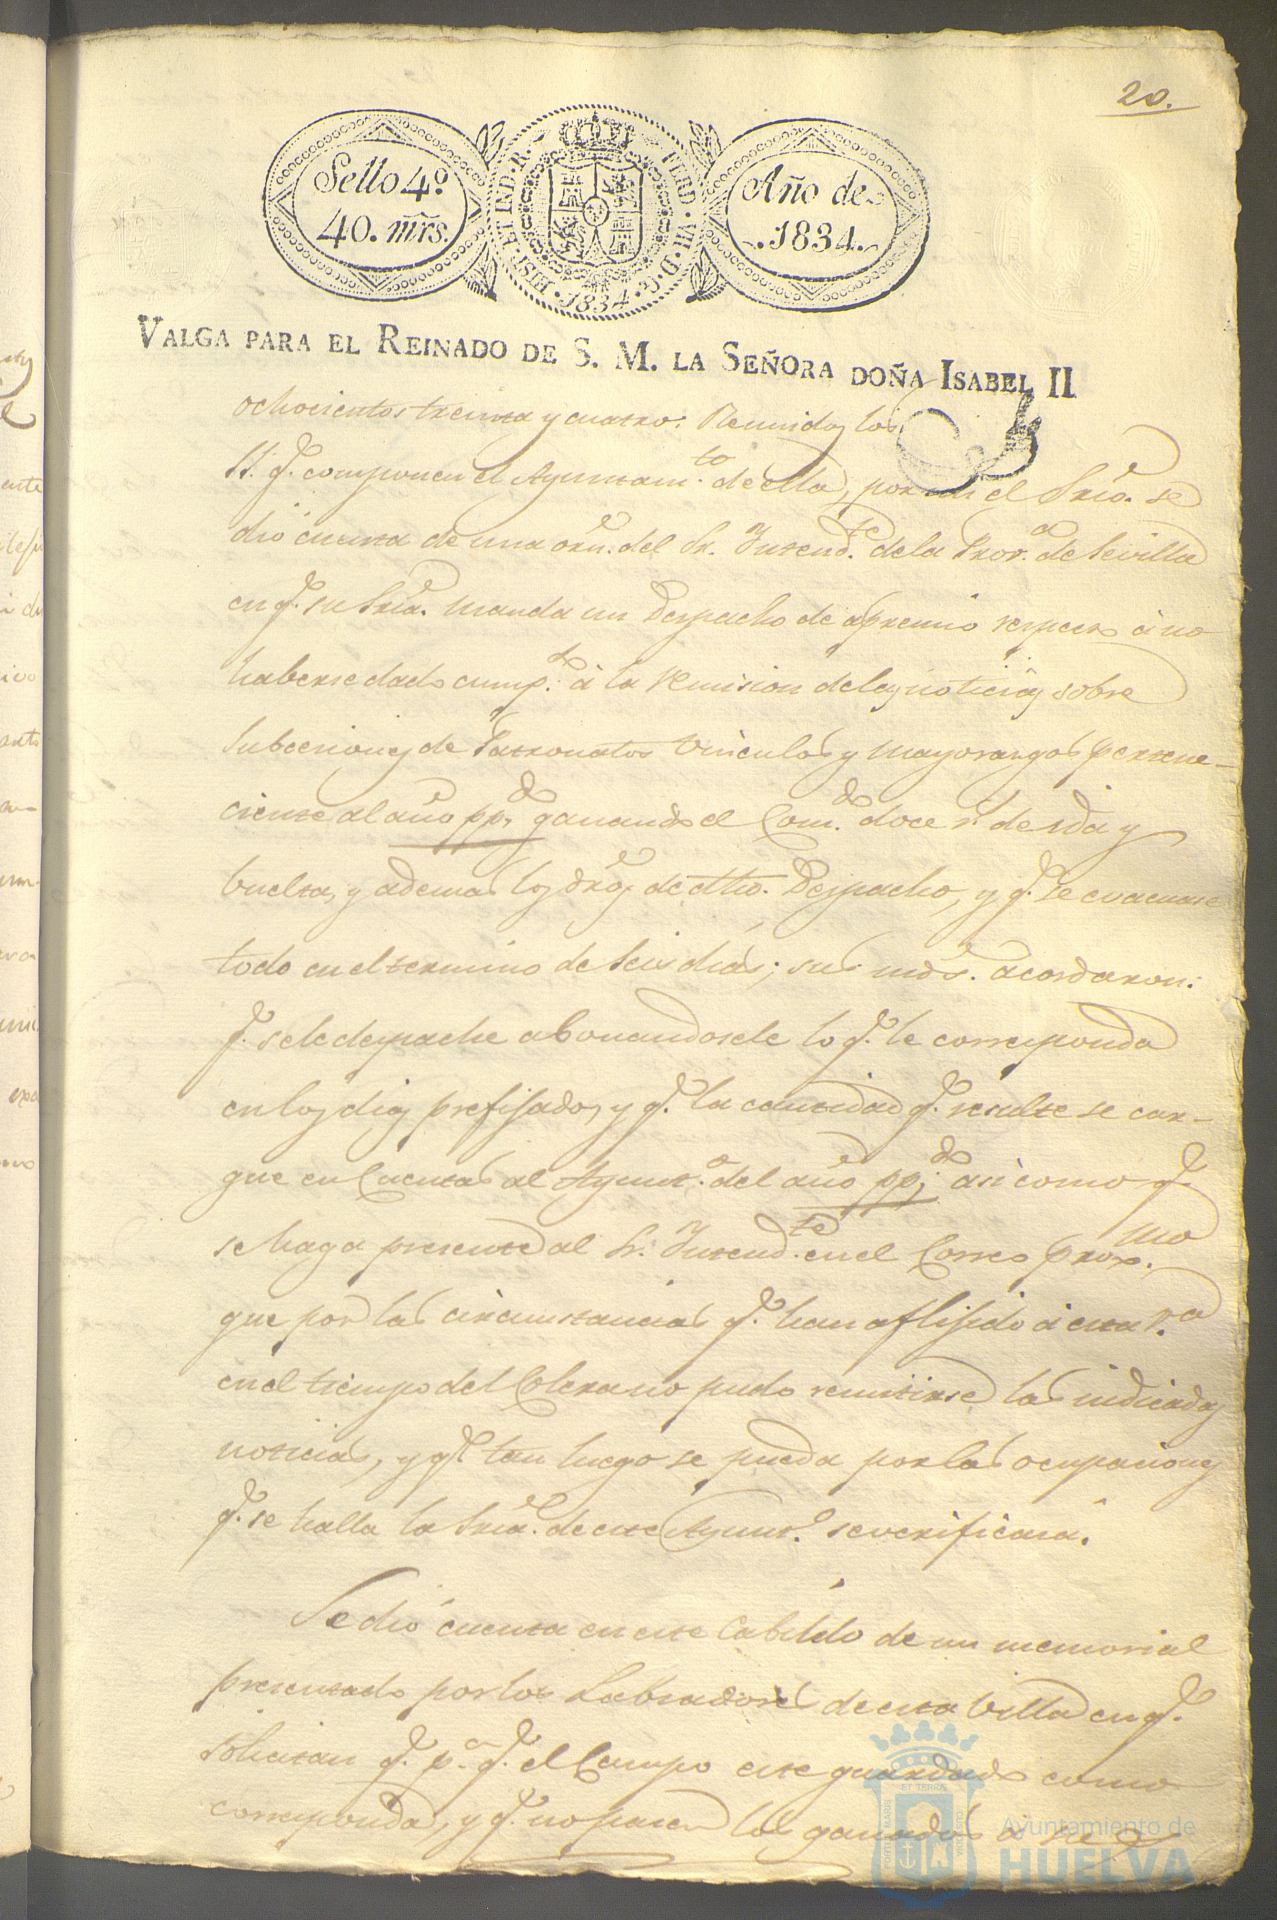 20.
Sello 4º
40. mrs.
HISP. ET IND. R.
FERD. VII. D. G.
1834
Año de
1834.
VALGA PARA EL REINADO DE S. M. LA SEÑORA DOÑA ISABEL II
ochocientos treinta y cuatro: Reunidos los
SS. q.e componen el Ayuntam.to de ella, por mi el Srio. se
dio cuenta de una orn. del Sr. Intend.te de la Prov.a de Sevilla
en q.e su Sria. manda un Despacho de apremio respecto á no
haberse dado cump.to á la remision de las noticias sobre
Subcesiones de Patronatos vinculos y mayorazgos pertene-
ciente al año pp.do ganando el Com.do doce r.s de ida y
buelta, y ademas los dros. de dho. Despacho, y q.e se evacuase
todo en el termino de seis dias; sus mds. acordaron:
q.e se le despache abonandosele lo q.e le corresponda
en los dias prefijados, y q.e la cantidad q.e resulte se car-
gue en Cuentas al Ayunt.o del año pp.do asi como q.e
se haga presente al Sr. Intend.te en el Correo prox.mo
que por las circunstancias q.e han aflijido á esta V.a
en el tiempo del Colera no pudo remitirse las indicadas
noticias, y q.e tan luego se pueda por las ocupaciones
q.e se halla la Sria. de este Ayunt.o se verificará.
Se dió cuenta en este Cabildo de un memorial
presentado por los Labradores de esta Villa en q.e
solicitan q.e p.a q.e el Campo este guardado como
corresponda, y q.e no pasen los ganados á
ET TERRAE
Ayuntamiento de
HUELVA